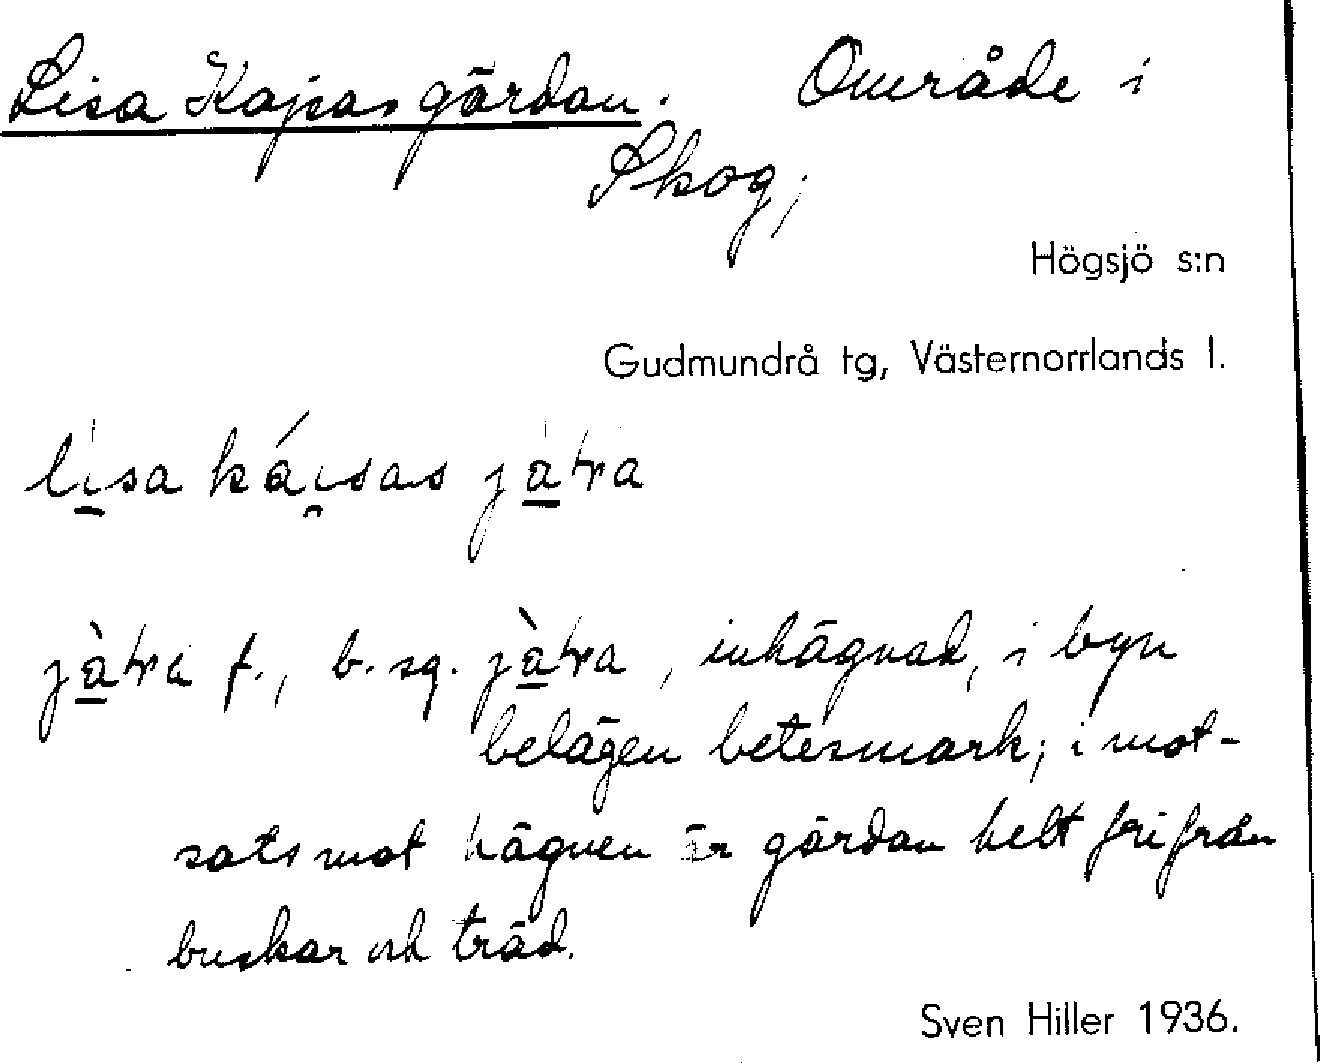 Lisa Kajsas gärdan. Område i
Skog,
Högsjö s:n
Gudmundrå tg, Västernorrlands l.
lisa káisas jàtra
jàtra f., b. sg. jàtra, inhägnad, i byn
belägen betesmark; i mot-
sats mot hägnen är gärdan helt fri från
buskar och träd.
Sven Hiller 1936.